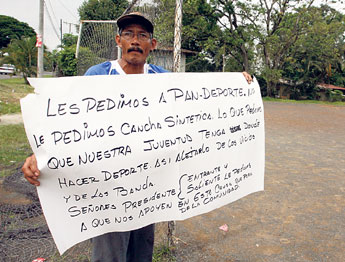 LES PEDIMOS A PAN-DEPORTE. NO
LE PEDIMOS CANCHA SINTETICA. LO QUE PEDIMOS
QUE NUESTRA JUVENTUD TENGA DONDE
HACER DEPORTE. ASI ALEJARLO DE LOS VICIOS
Y DE LAS BANDA
SEÑORES PRESIDENTE
ENTRANTE Y
SALIENTE LE PEDIMOS
A QUE NOS APOYEN EN ESTE
DE LA COMUNIDAD